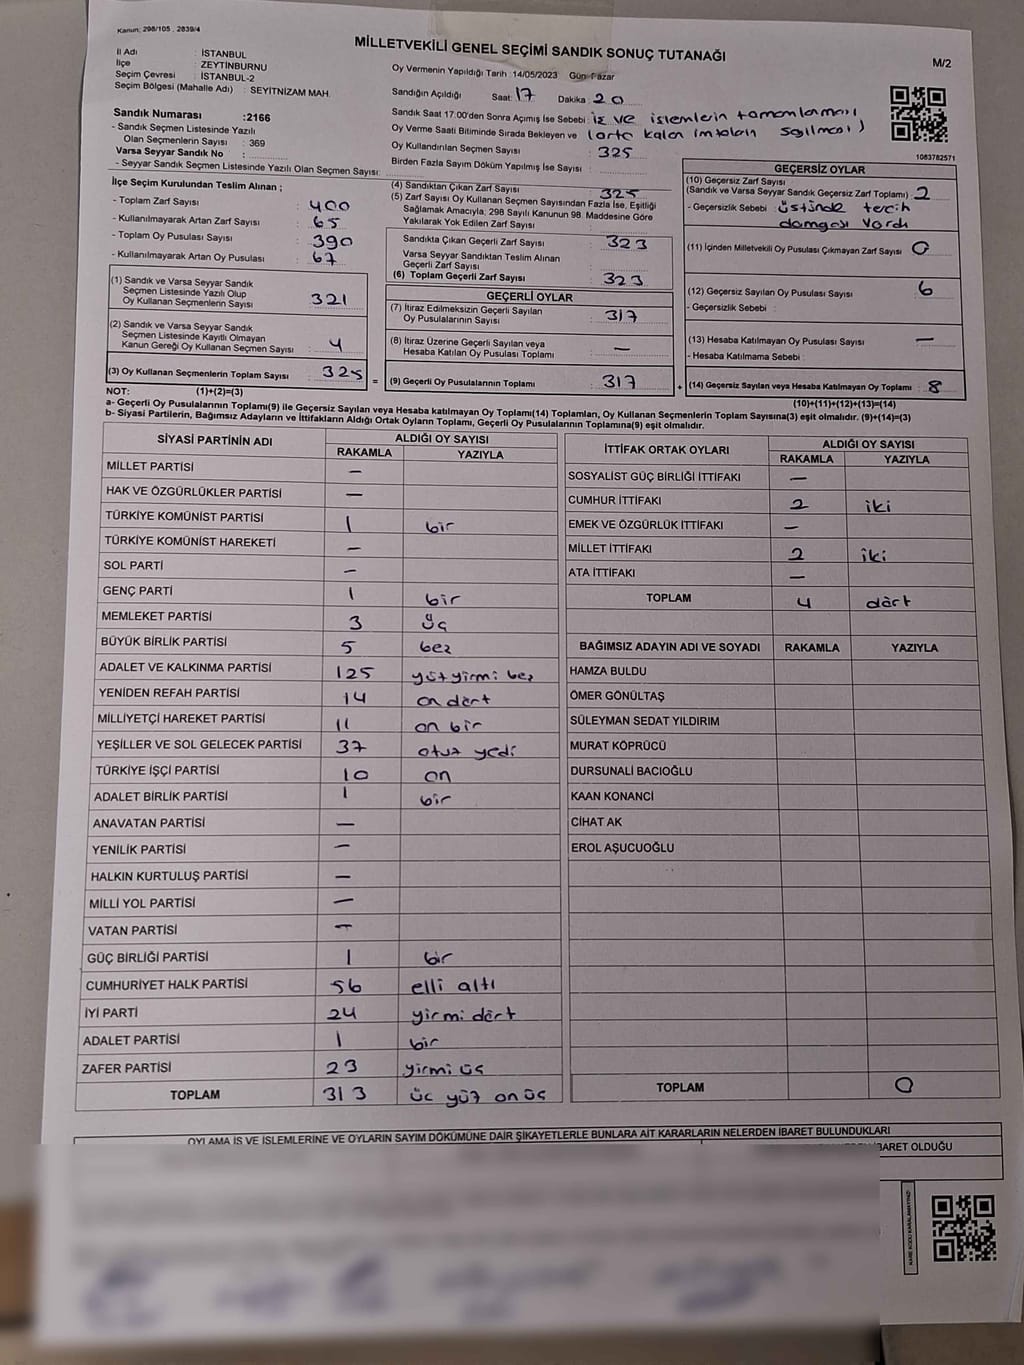 Kanun: 298/105 , 2839/4
MİLLETVEKİLİ GENEL SEÇİMİ SANDIK SONUÇ TUTANAĞI
M/2
İl Adı : İSTANBUL
İlçe : ZEYTİNBURNU
Seçim Çevresi : İSTANBUL-2
Seçim Bölgesi (Mahalle Adı) : SEYİTNİZAM MAH.
Oy Vermenin Yapıldığı Tarih 14/05/2023 Gün Pazar
Sandığın Açıldığı Saat: 17 Dakika 20
Sandık Saat 17:00'den Sonra Açımış İse Sebebi iş ve işlemlerin tamamlanması
Oy Verme Saati Bitiminde Sırada Bekleyen ve
Oy Kullandırılan Seçmen Sayısı : 325
Birden Fazla Sayım Döküm Yapılmış İse Sayısı
Sandık Numarası :2166
- Sandık Seçmen Listesinde Yazılı
Olan Seçmenlerin Sayısı : 369
Varsa Seyyar Sandık No :
- Seyyar Sandık Seçmen Listesinde Yazılı Olan Seçmen Sayısı:
1083782571
İlçe Seçim Kurulundan Teslim Alınan ;
- Toplam Zarf Sayısı : 400
- Kullanılmayarak Artan Zarf Sayısı : 65
- Toplam Oy Pusulası Sayısı : 390
- Kullanılmayarak Artan Oy Pusulası : 67
(1) Sandık ve Varsa Seyyar Sandık
Seçmen Listesinde Yazılı Olup
Oy Kullanan Seçmenlerin Sayısı : 321
(2) Sandık ve Varsa Seyyar Sandık
Seçmen Listesinde Kayıtlı Olmayan
Kanun Gereği Oy Kullanan Seçmen Sayısı : 4
(3) Oy Kullanan Seçmenlerin Toplam Sayısı : 325
(4) Sandıktan Çıkan Zarf Sayısı : 325
(5) Zarf Sayısı Oy Kullanan Seçmen Sayısından Fazla İse, Eşitliği
Sağlamak Amacıyla, 298 Sayılı Kanunun 98. Maddesine Göre
Yakılarak Yok Edilen Zarf Sayısı :
Sandıkta Çıkan Geçerli Zarf Sayısı : 323
Varsa Seyyar Sandıktan Teslim Alınan
Geçerli Zarf Sayısı :
(6) Toplam Geçerli Zarf Sayısı : 323
GEÇERLİ OYLAR
(7) İtiraz Edilmeksizin Geçerli Sayılan
Oy Pusulalarının Sayısı : 317
(8) İtiraz Üzerine Geçerli Sayılan veya
Hesaba Katılan Oy Pusulası Toplamı : —
= (9) Geçerli Oy Pusulalarının Toplamı : 317
GEÇERSİZ OYLAR
(10) Geçersiz Zarf Sayısı
(Sandık ve Varsa Seyyar Sandık Geçersiz Zarf Toplamı) : 2
- Geçersizlik Sebebi : üstünde tercih
damgası vardı
(11) İçinden Milletvekili Oy Pusulası Çıkmayan Zarf Sayısı : 0
(12) Geçersiz Sayılan Oy Pusulası Sayısı : 6
- Geçersizlik Sebebi :
(13) Hesaba Katılmayan Oy Pusulası Sayısı : —
- Hesaba Katılmama Sebebi :
+ (14) Geçersiz Sayılan veya Hesaba Katılmayan Oy Toplamı : 8
NOT: (1)+(2)=(3)
(10)+(11)+(12)+(13)=(14)
a- Geçerli Oy Pusulalarının Toplamı(9) ile Geçersiz Sayılan veya Hesaba katılmayan Oy Toplamı(14) Toplamları, Oy Kullanan Seçmenlerin Toplam Sayısına(3) eşit olmalıdır. (9)+(14)=(3)
b- Siyasi Partilerin, Bağımsız Adayların ve İttifakların Aldığı Ortak Oyların Toplamı, Geçerli Oy Pusulalarının Toplamına(9) eşit olmalıdır.
SİYASİ PARTİNİN ADI ALDIĞI OY SAYISI
RAKAMLA YAZIYLA
MİLLET PARTİSİ —
HAK VE ÖZGÜRLÜKLER PARTİSİ —
TÜRKİYE KOMÜNİST PARTİSİ 1 bir
TÜRKİYE KOMÜNİST HAREKETİ —
SOL PARTİ —
GENÇ PARTİ 1 bir
MEMLEKET PARTİSİ 3 üç
BÜYÜK BİRLİK PARTİSİ 5 beş
ADALET VE KALKINMA PARTİSİ 125 yüz yirmi beş
YENİDEN REFAH PARTİSİ 14 on dört
MİLLİYETÇİ HAREKET PARTİSİ 11 on bir
YEŞİLLER VE SOL GELECEK PARTİSİ 37 otuz yedi
TÜRKİYE İŞÇİ PARTİSİ 10 on
ADALET BİRLİK PARTİSİ 1 bir
ANAVATAN PARTİSİ —
YENİLİK PARTİSİ —
HALKIN KURTULUŞ PARTİSİ —
MİLLİ YOL PARTİSİ —
VATAN PARTİSİ —
GÜÇ BİRLİĞİ PARTİSİ 1 bir
CUMHURİYET HALK PARTİSİ 56 elli altı
İYİ PARTİ 24 yirmi dört
ADALET PARTİSİ 1 bir
ZAFER PARTİSİ 23 yirmi üç
TOPLAM 313 üç yüz on üç
İTTİFAK ORTAK OYLARI ALDIĞI OY SAYISI
RAKAMLA YAZIYLA
SOSYALİST GÜÇ BİRLİĞİ İTTİFAKI —
CUMHUR İTTİFAKI 2 iki
EMEK VE ÖZGÜRLÜK İTTİFAKI —
MİLLET İTTİFAKI 2 iki
ATA İTTİFAKI —
TOPLAM 4 dört
BAĞIMSIZ ADAYIN ADI VE SOYADI RAKAMLA YAZIYLA
HAMZA BULDU
ÖMER GÖNÜLTAŞ
SÜLEYMAN SEDAT YILDIRIM
MURAT KÖPRÜCÜ
DURSUNALİ BACIOĞLU
KAAN KONANCİ
CİHAT AK
EROL AŞUCUOĞLU
TOPLAM 0
OYLAMA İŞ VE İŞLEMLERİNE VE OYLARIN SAYIM DÖKÜMÜNE DAİR ŞİKAYETLERLE BUNLARA AİT KARARLARIN NELERDEN İBARET BULUNDUKLARI
İBARET OLDUĞU
KARE KODU KARALAMAYINIZ!